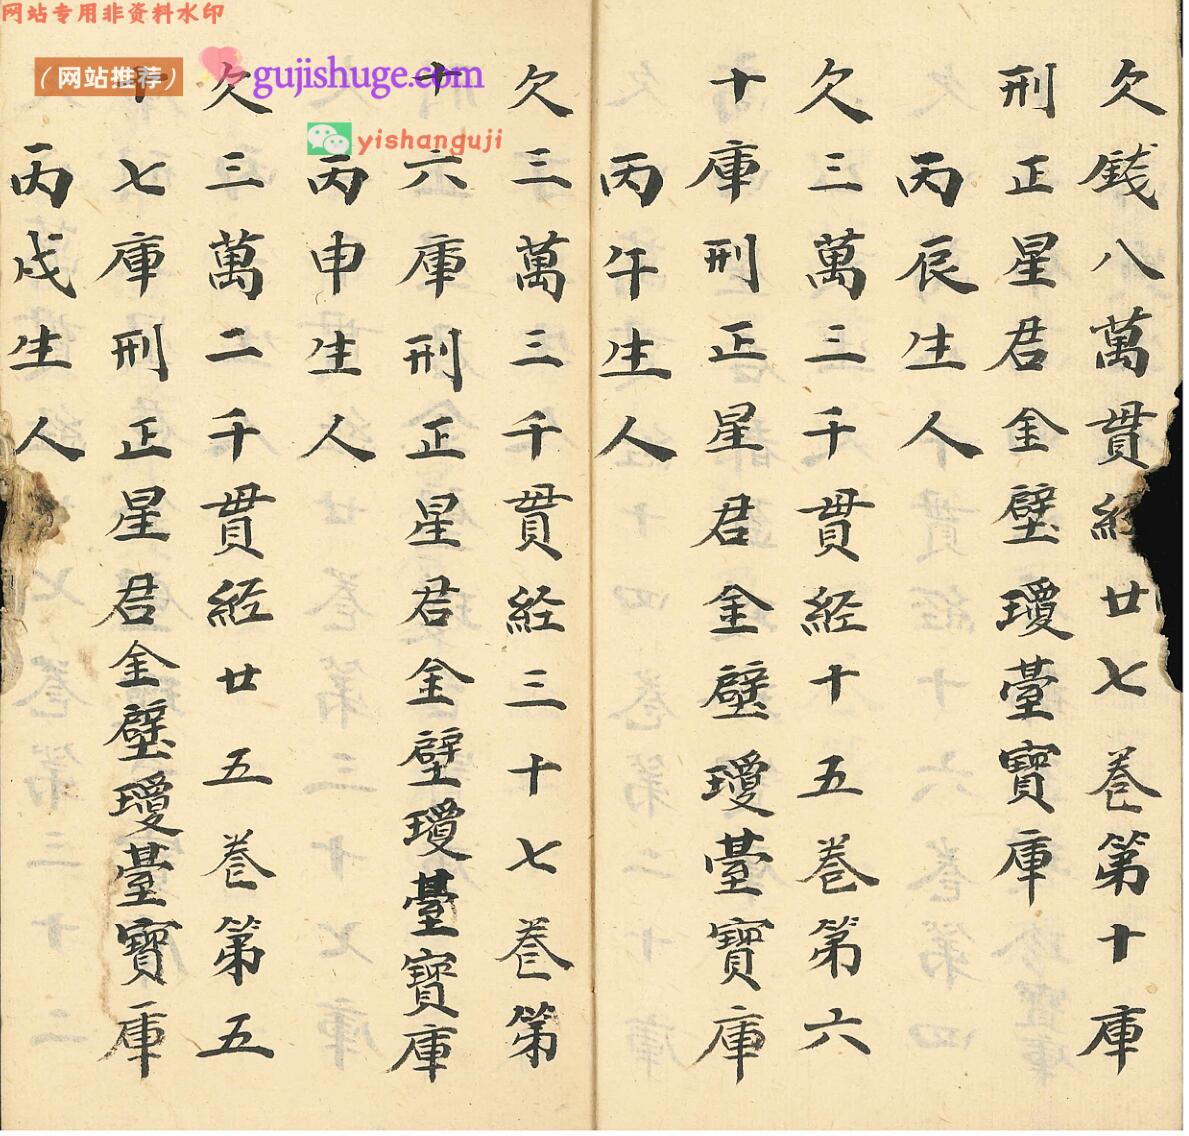 网站专用非资料水印
（网站推荐）
gujishuge.com
yishanguji
欠錢八萬貫經廿七巻第十庫
刑正星君金壁瓊臺寶庫
丙辰生人
欠三萬三千貫経十五巻第六
十庫刑正星君金壁瓊臺寶庫
丙午生人
欠三萬三千貫経三十七巻第
十六庫刑正星君金壁瓊臺寶庫
丙申生人
欠三萬二千貫経廿五巻第五
十七庫刑正星君金壁瓊臺寶庫
丙戍生人